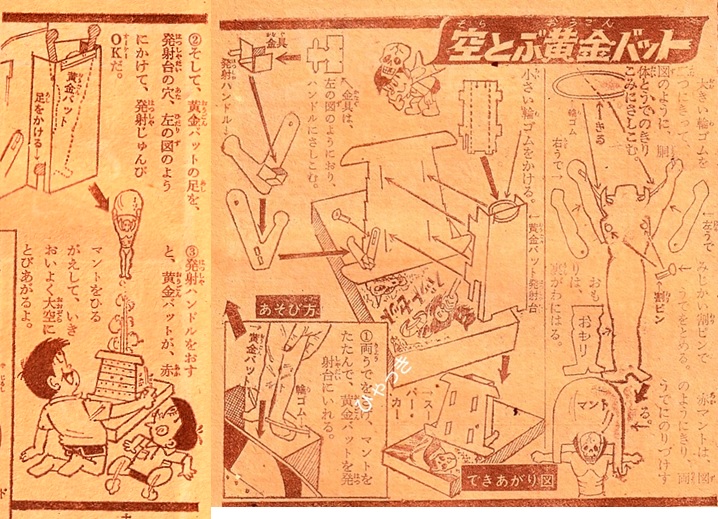 空とぶ黄金バット
そら
おうごん
大きい輪ゴムを
図のように、胴
体とうでのきり
こみにさしこむ
輪ゴム
きる
右うで
←左うで
みじかい割ピンで
うでをとめる。
←割ピン
おもり
おも
りは、
がわにはる。
赤マントは、図
のようにきり
両
うでにのりづけす
る。
マント
金具
発射ハンドル
↖金具は、
左の図のようにおり、
ハンドルにさしこむ。
小さい輪ゴムをかける。
←黄金バット発射台
スーパーカー
できあがり図
あそび方
①両うでを
マントを
たたんで、黄金バットを発
射台にいれる。
輪ゴム
↑黄金バット
ひやつき
②そして、黄金バットの足を、
発射台の穴、左の図のよう
にかけて、発射じゅんび
OKだ。
黄金バット
足をかける↓
③発射ハンドルをおす
と、黄金バットが、赤
マントをひる
がえして、いき
おいよく大空に
とびあがるよ。